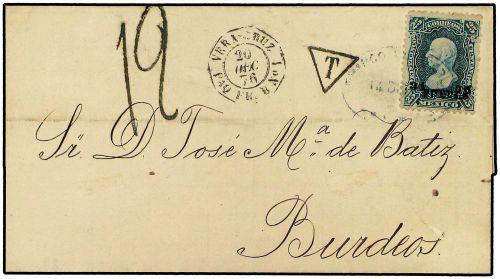 12
VERA-CRUZ
20
DEC
76
T
CORREOS
MEXICO
Sr. D. José Ma. de Batiz.
Burdeos.